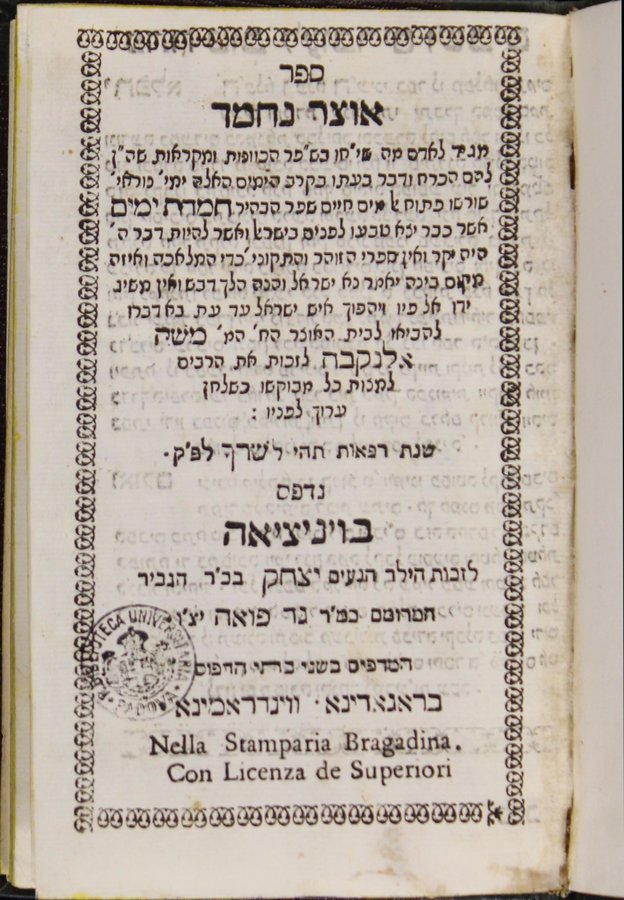 ספר
אוצר נחמד
מגיד לאדם מה שיחו בש"פר הכוונות ומקראות שה"ן
להם הכרח ודבר בעתו בקרב הימים האלה ימי' נוראי'
שורשו פתוח אל מים חיים ספר הבהיר חמדת ימים
אשר כבר יצא טבעו לפנים בישראל ואשר להיות דבר ה'
היה יקר ואין ספרי הזוהר והתקוני' כדי המלאכה ואיזה
מקום בינה יאמר נא ישראל והנה הלך דבש ואין משיג
ידו אל פיו ויהפוך איש ישראל עד עת בא דברו
להביאו לבית האוצר הח' המ' משה
אלנקבה לזכות את הרבים
למנות כל מבוקשו כשלחן
ערוך לפניו :
שנת רפאות תהי לשרך לפ"ק.
נדפס
בויניציאה
לזכות הילד הנעים יצחק בכ"ר הגביר
המרומם כמ"ר גד פואה יצ"ו
המדפיס בשני בתי הדפוס
בראגאדינא. ווינדראמינא.
Nella Stamparia Bragadina.
Con Licenza de Superiori
BIBLIOTECA UNIVERSITARIA
PADOVA